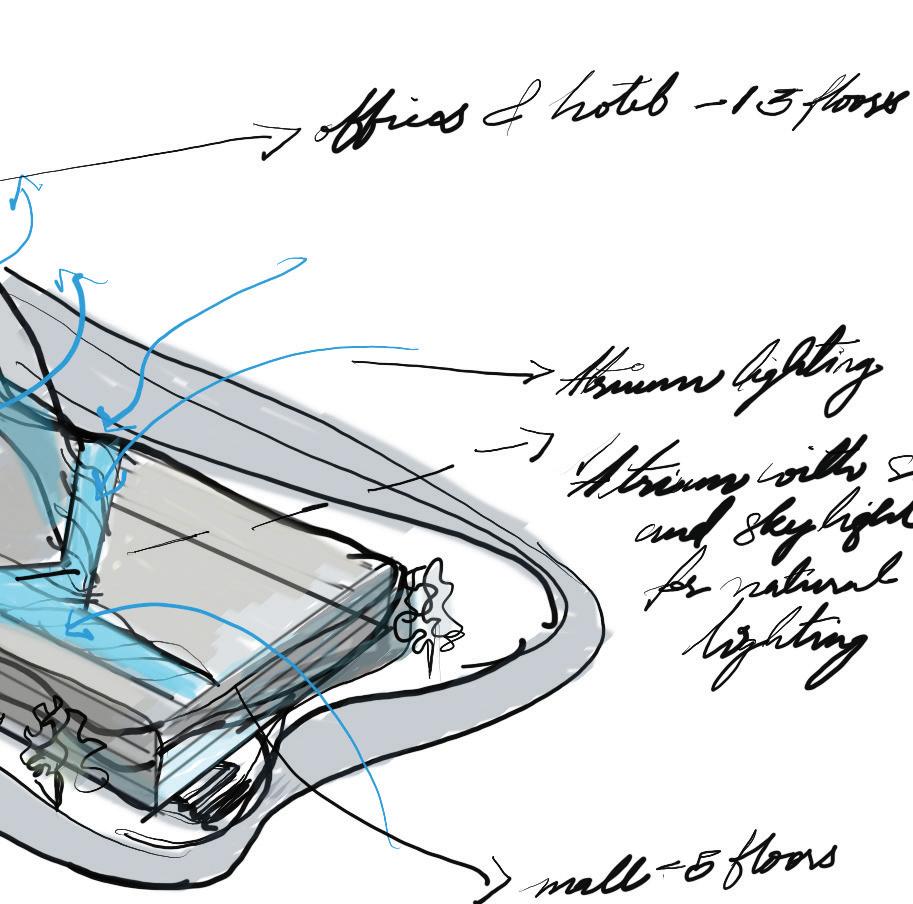 offices & hotel - 13 floors
Atrium lighting
Atrium with
and skylight
for natural
lighting
mall - 5 floors